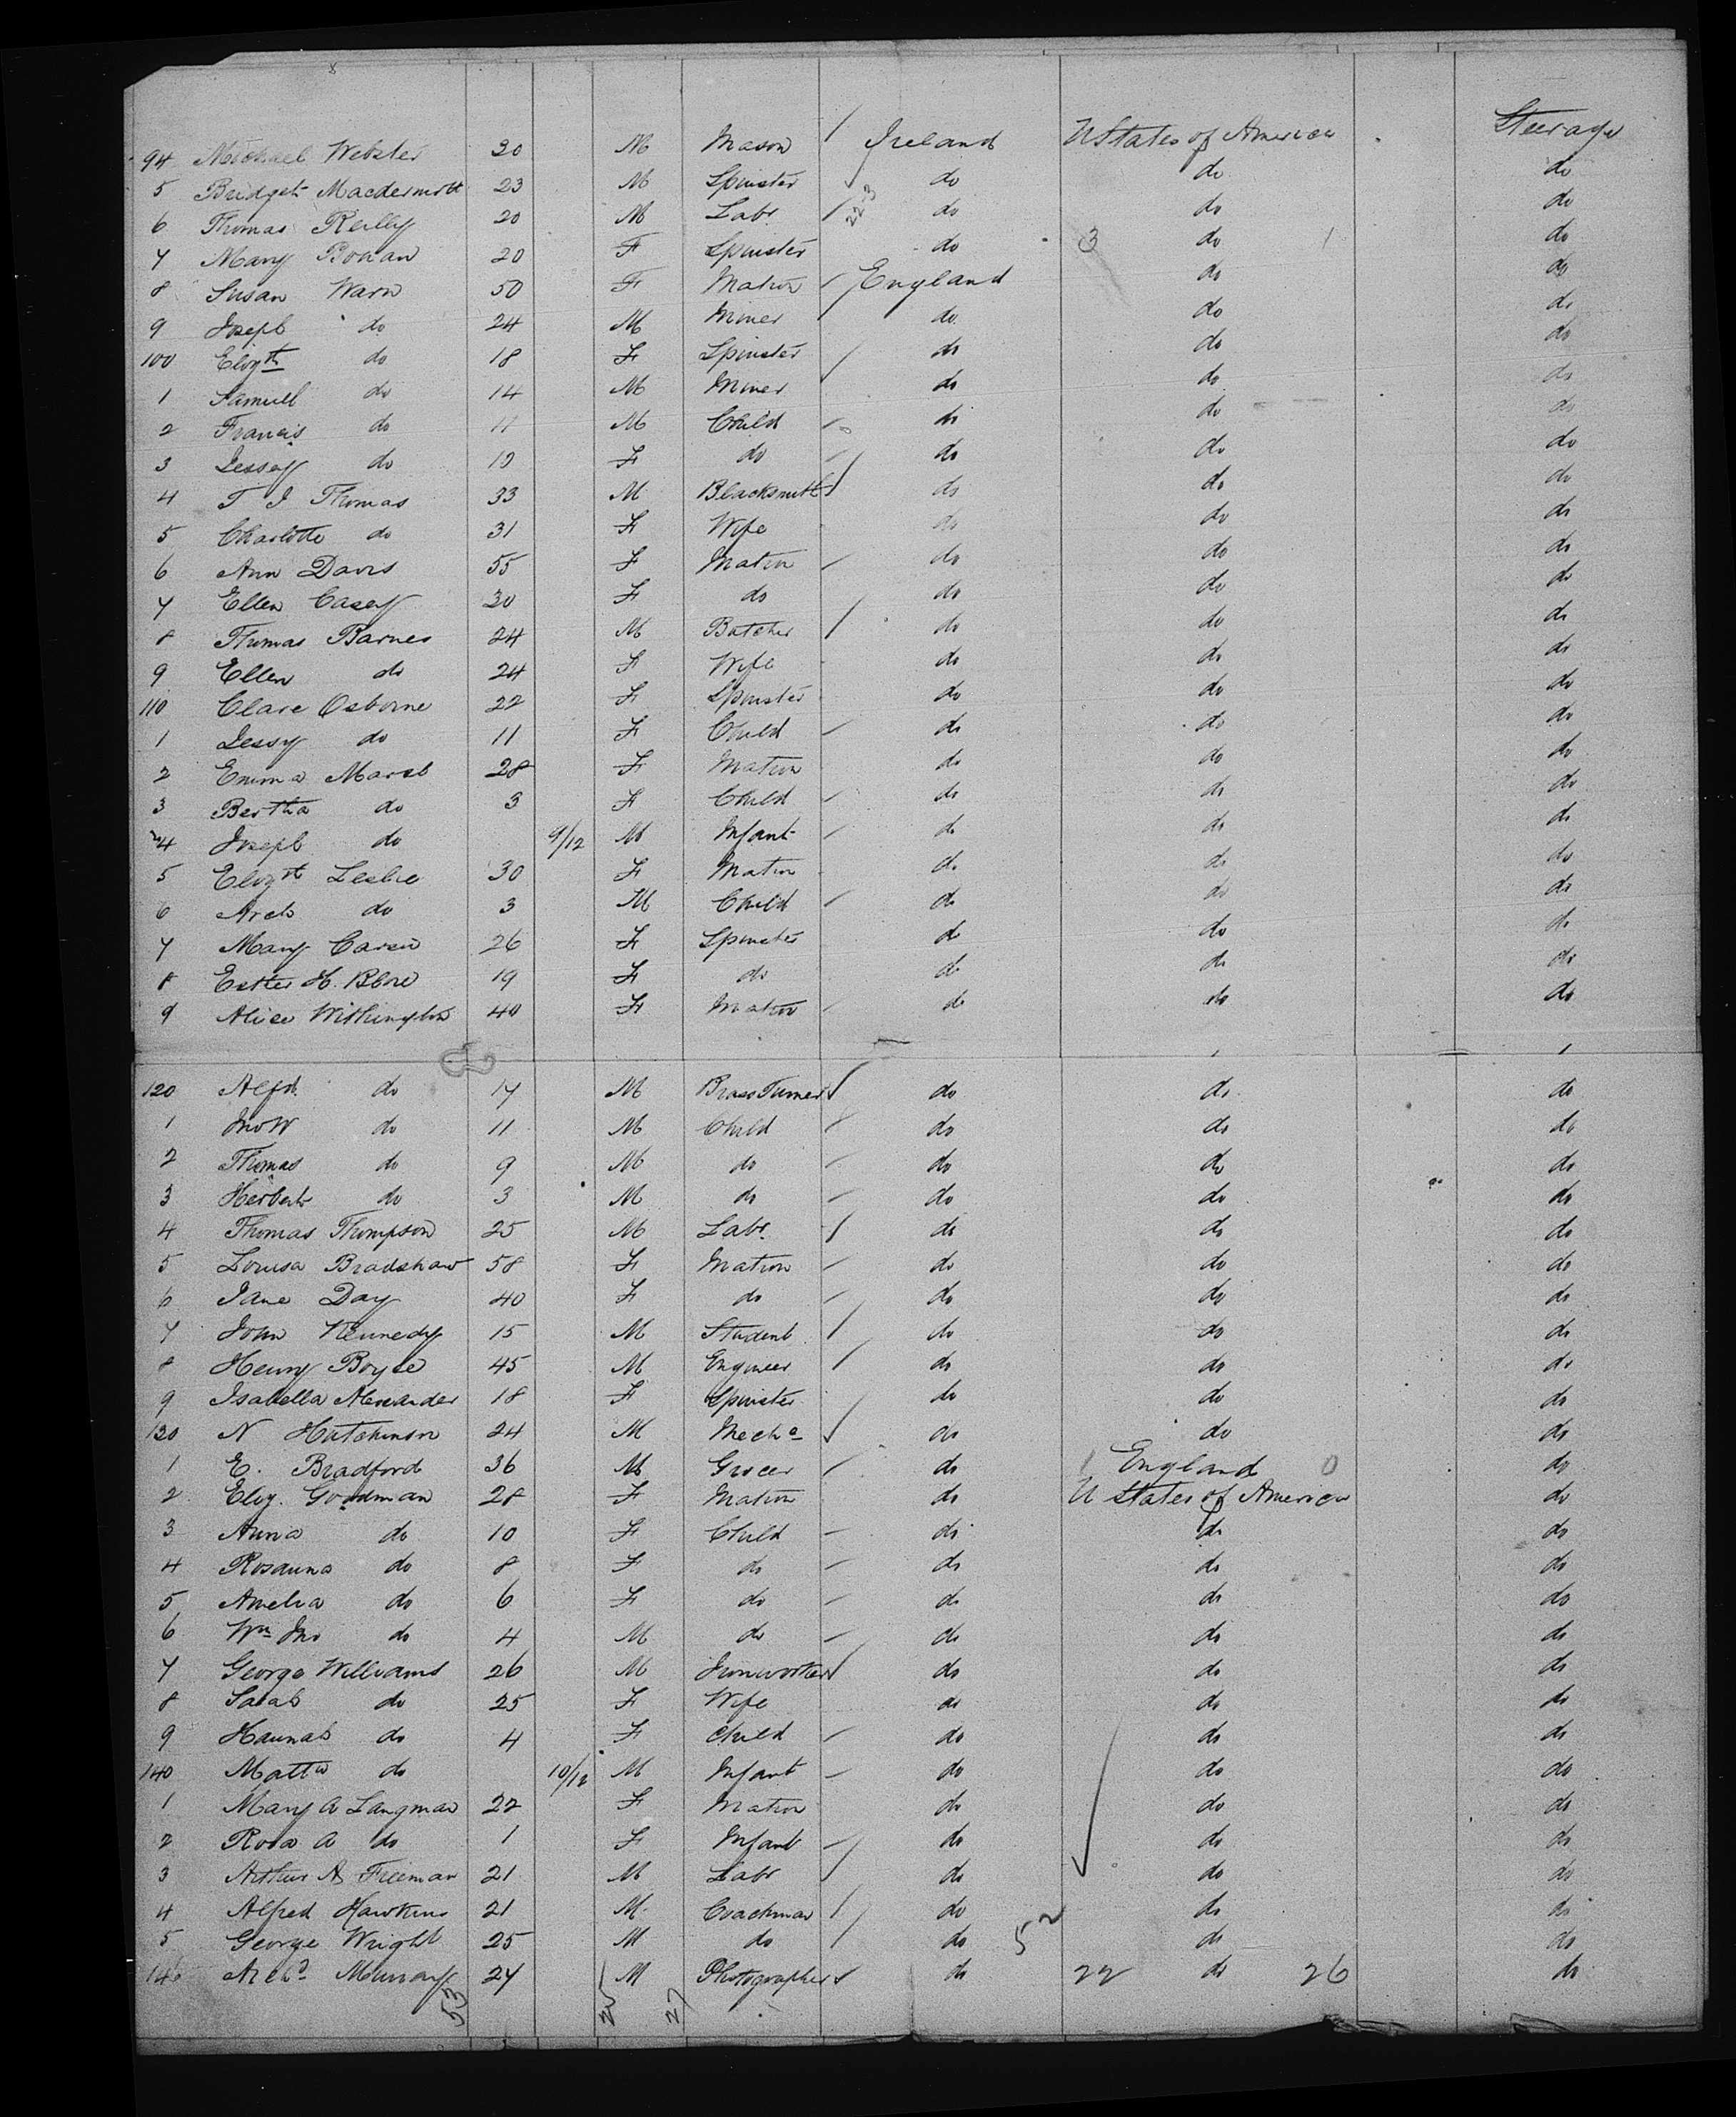 94 Michael Webster 30 M Mason Ireland U States of America Steerage
5 Bridget Macdermott 23 M Spinster do do do
6 Thomas Reilly 20 M Labr 22-3 do do do
7 Mary 20 F Spinster do 3 do 1 do
8 Susan Warn 50 F Matron England do do
9 Joseph do 24 M Miner do do do
100 Elizth do 18 F Spinster do do do
1 Samuel do 14 M Miner do do do
2 Francis do 11 M Child do do do
3 Jessey do 10 F do do do do
4 T J Thomas 33 M Blacksmith do do do
5 Charlotte do 31 F Wife do do do
6 Ann Davis 55 F Matron do do do
7 Ellen Casey 30 F do do do do
8 Thomas Barnes 24 M Butcher do do do
9 Ellen do 24 F Wife do do do
110 Clare Osborne 22 F Spinster do do do
1 Jessy do 11 F Child do do do
2 Emma Marsh 28 F Matron do do do
3 Bertha do 3 F Child do do do
4 Joseph do 9/12 M Infant do do do
5 Elizth Leslie 30 F Matron do do do
6 Arch do 3 M Child do do do
7 Mary 26 F Spinster do do do
8 Esther H. Blore 19 F do do do do
9 Alice Withington 40 F Matron do do do
120 Alfd. do 17 M Brass Turner do do do
1 Jno W do 11 M Child do do do
2 Thomas do 9 M do do do do
3 Herbert do 3 M do do do do
4 Thomas Thompson 25 M Labr. do do do
5 Louisa Bradshaw 58 F Matron do do do
6 Jane Day 40 F do do do do
7 John Kennedy 15 M Student do do do
8 Henry Boyce 45 M Engineer do do do
9 Isabella Alexander 18 F Spinster do do do
130 N Hutchinson 24 M Mecha do do do
1 E. Bradford 36 M Grocer do 1 England 0 do
2 Eliz. Goodman 28 F Matron do U States of America do
3 Anna do 10 F Child do do do
4 Rosanna do 8 F do do do do
5 Amelia do 6 F do do do do
6 Wm Jno do 4 M do do do do
7 George Williams 26 M Ironworker do do do
8 Sarah do 25 F Wife do do do
9 Hannah do 4 F Child do do do
140 Mattw do 10/12 M Infant do do do
1 Mary A Langman 22 F Matron do do do
2 Rosa A do 1 F Infant do do do
3 Arthur A Freeman 21 M Labr do do do
4 Alfred Hawkins 21 M Coachman do do do
5 George Wright 25 M do do 52 do do
146 Archd Murray 27 M Photographer do 22 do 26 do
53 25 27